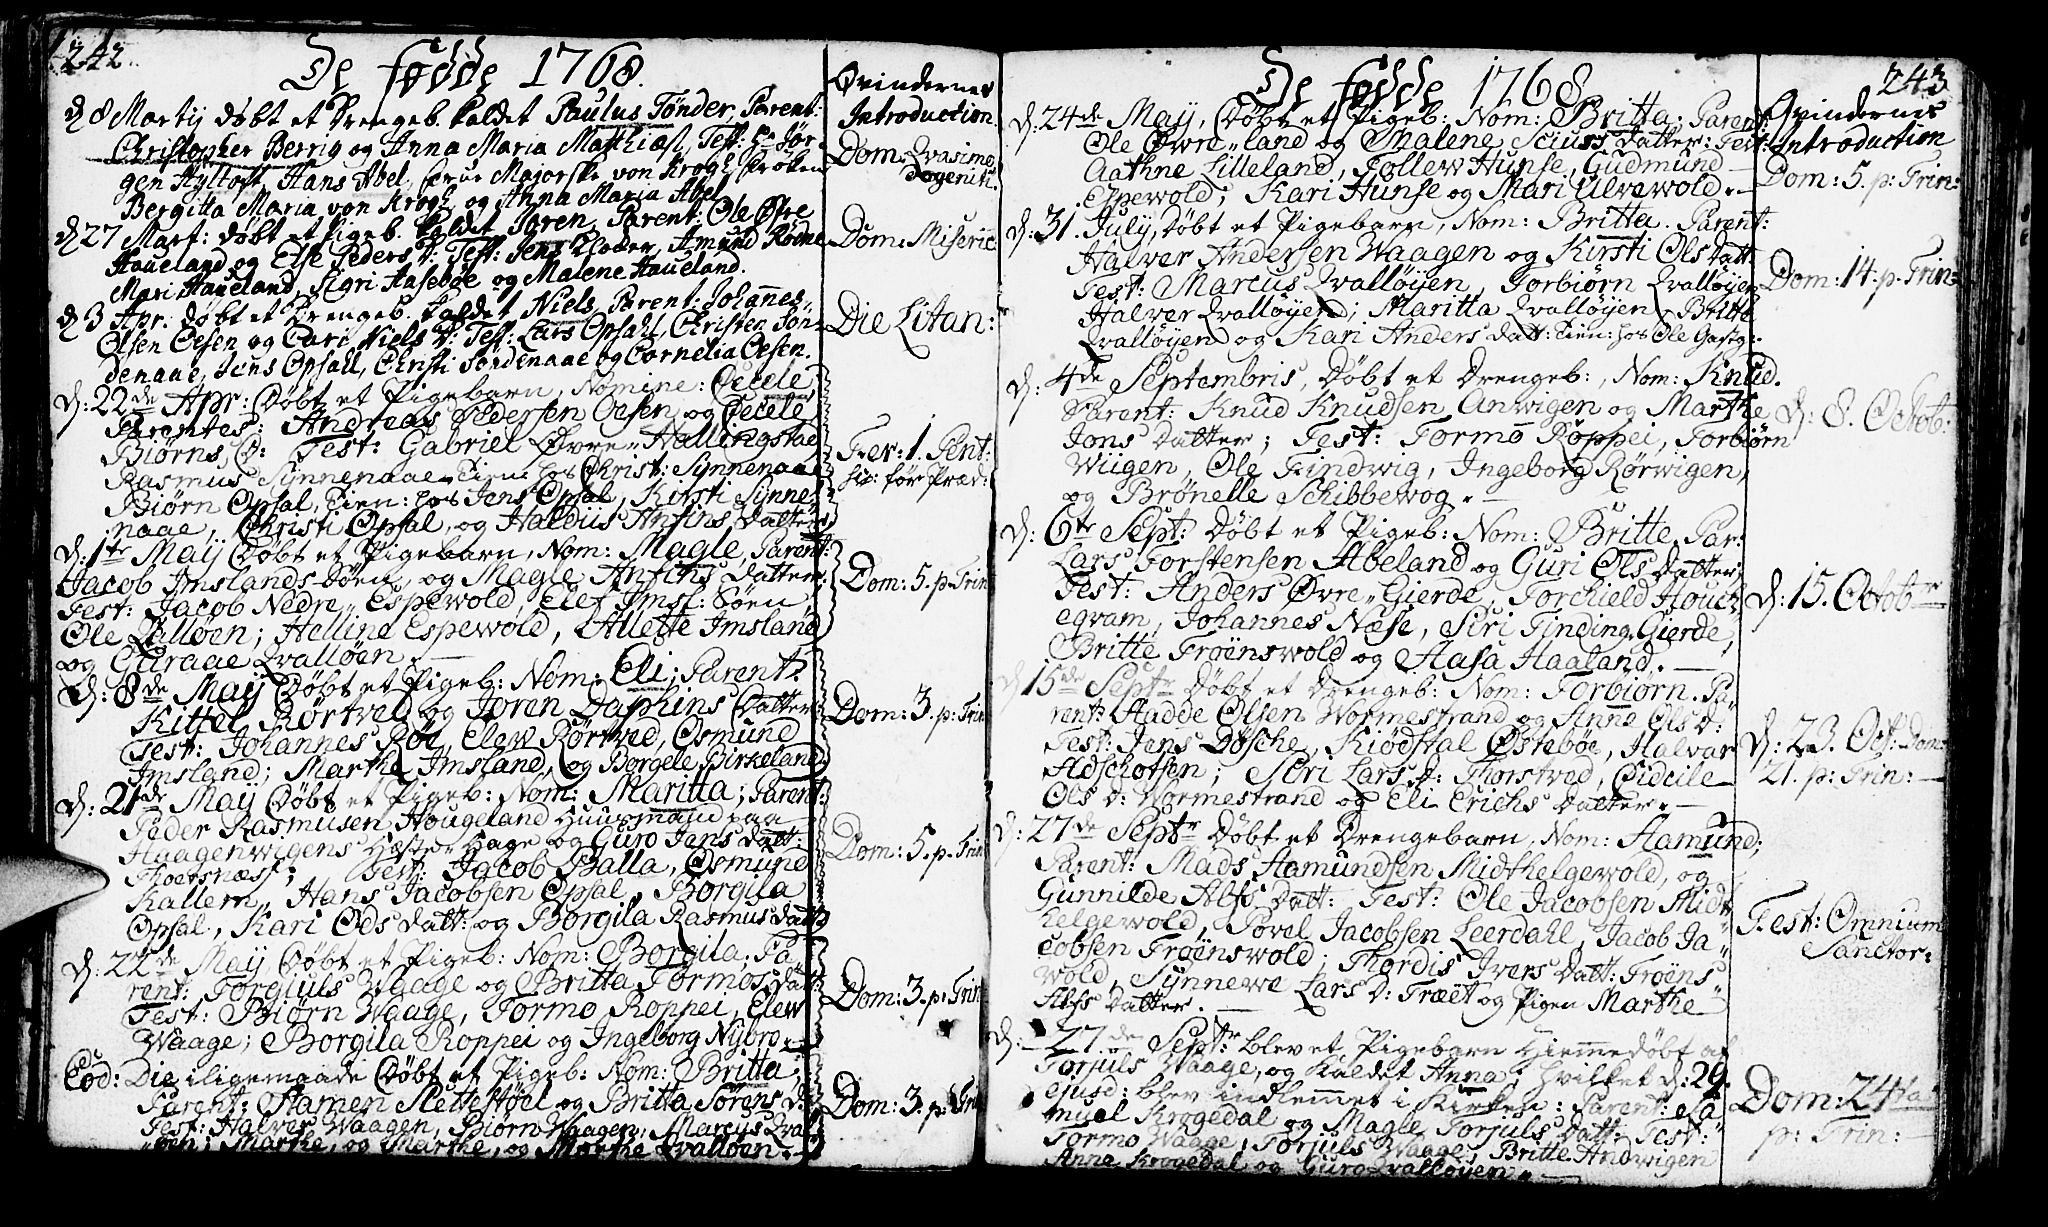 242
De fødde 1768.
Qvindernes
Introduction
d 8 Martij døbt et Drengeb. kaldet Paulus Tønder, Parent:
Christopher Berrig og Anna Maria Matthiæs, Test: Hr Jør-
gen Hyltoft, Hans Abel, Frue Majorske von Krogh, Frøken
Bergitta Maria von Krogh og Anna Maria Abel.
Dom: Qvasimo
dogenit:
d 27 Mart: døbt et Pigeb. kaldet Joren, Parent: Ole Øfre
Haueland og Else Peders D: Test: Jens Kloder, Amund Rødne
Mari Haueland, Sigri Aasebøe og Malene Haueland.
Dom: Miseric
d 3 Apr. døbt et Drengeb. kaldet Niels, Parent: Johannes
Olsen Oesen og Cari Niels D: Test: Lars Opsahl, Christen Søn-
denaae, Jens Opsahl, Christi Søndenaae og Cornelia Oesen.
Die Litan:
d: 22de Apr: Døbt et Pigebarn, Nomine: Cecele
Parentes: Andreas Pedersen Oesen og Cecele
Biørns D: Test: Gabriel Øvre-Hellingstae
Rasmus Synnenaae, Tien: hos Christ: Synnenaae
Biørn Opsal, Tien: hos Jens Opsal, Kirsti Synne-
naae, Christi Opsal, og Haldiis Anfins Datter
Fer: 1. Pent:
for Præd:
d: 1te Maij Døbt et Pigebarn, Nom: Magle, Parent:
Jacob Imslands Søen, og Magle Anfins Datter;
Test: Jacob Nedre Espewold, Elef Imsl: Søen
Ole Qvalløen; Helline Espewold, Allette Imsland
og Guraae Qvalløen.
Dom: 5. p: Trin
d: 8de Maij Døbt et Pigeb: Nom: Eli; Parent:
Kittel Rørtved og Joren Daphins Datter
Test: Johannes Roe, Elew Rørtved, Osmund
Imsland; Marthe Imsland, og Borgele Birkeland
Dom: 3. p: Trin
d: 21de Maij Døbt et Pigeb: Nom: Maritta; Parent:
Peder Rasmusen Hougeland Huusmand paa
Haagenwigens Hage og Guro Jens Datt:
Thoersnæs; Test: Jacob Balla, Osmund
Kallem, Hans Jacobsen Opsal, Borgila
Opsal, Kari Ods Datt: og Borgila Rasmus Datt
Dom: 5. p. Trin
d: 22de Maij Døbt et Pigeb: Nom: Borgila, Pa
rent: Torgiuls Waage og Britta Tormos Datt
Test: Biørn Waage, Tormo Roppei, Elew
Waage; Borgila Roppei og Ingeborg Nybro.
Dom: 3. p: Trin
Eod: Die iligemaade Døbt et Pigeb: Nom: Britta
Parent: Aamen Slettestøel og Britta Sørens D:
Test: Halver Waagen, Biørn Waagen, Marcus Qval
løen; Marthe, og Marthe, og Marthe Qvalløen.
Dom: 3. p: Trin
243
De fødde 1768
Qvindernes
Introduction
d: 24de May, Døbt et Pigeb: Nom: Britta; Parent
Ole Øwre-land og Malene Sciurs Datter: Test:
Aathne Lilleland, Tollew Hunse, Gudmund
Espewold; Kari Hunse og Mari Ulvewold.
Dom: 5. p: Trin:
d: 31. July, Døbt et Pigebarn, Nom: Britta. Parent:
Halver Andersen Waagen og Kirsti Ols Datt
Test: Marcus Qvalløyen, Torbiørn Qvalløyen
Halver Qvalløyen; Maritta Qvalløyen, Britte
Qvalløyen og Kari Anders Datt: Tien: hos Ole Gastg:
Dom: 14. p. Trin:
d: 4de Septembris, Døbt et Drengeb:, Nom: Knud.
Parent: Knud Knudsen Anwigen og Marthe
Jons Datter; Test: Tormo Roppei, Torbiørn
Wiigen, Ole Findwig, Ingeborg Rørwigen,
og Brønelle Schibbewog.
d: 8. Octob:
d: 6te Sept: Døbt et Pigeb: Nom: Britte, Par:
Lars Torstensen Abeland og Guri Ols Datter
Test: Anders Øvre-Gierde, Torchield Houck-
egvam, Johannes Næse, Siri Finding Gierde,
Britte Froënswold og Aasa Haaland.
d: 15. Octobr
d 15de Septr Døbt et Drengeb: Nom: Torbiørn. Pa-
rent: Aadde Olsen Wormestrand og Anna Ols D:
Test: Jens Døsche, Kiødstal Østebøe, Halvar
Adschotsen; Siri Lars D: Thorstved, Cidcile
Ols D: Wormestrand og Eli Erichs Datter.
d: 23. Oct: Dom
21. p: Trin:
d: 27de Septr Døbt et Drengebarn, Nom: Aamund;
Parent: Mads Aamundsen Midthelgewold, og
Gunnilde Alfs Datt: Test: Ole Jacobsen Midt
helgewold, Povel Jacobsen Leerdahl, Jacob Ja-
cobsen Froënswold; Thordis Ivers Datt: Froëns-
wold, Synnewe Lars D: Træet og Pigen Marthe
Alfs Datter.
Fest: Omnium
Sanctor:
d: 27de Septr blev et Pigebarn Hiemmedøbt af
Torjuls Waage, og kaldet Anna; hvilket d: 29.
ejusd: blev indlemmet i Kirken: Parent: Sa
muel Krogedal og Magle Torjuls Datt: Test:
Tormo Waage, Torjuls Waage, Britte Andwigen
Anna Krogedal og Guro Qvalløyen.
Dom: 24ta
p: Trin: